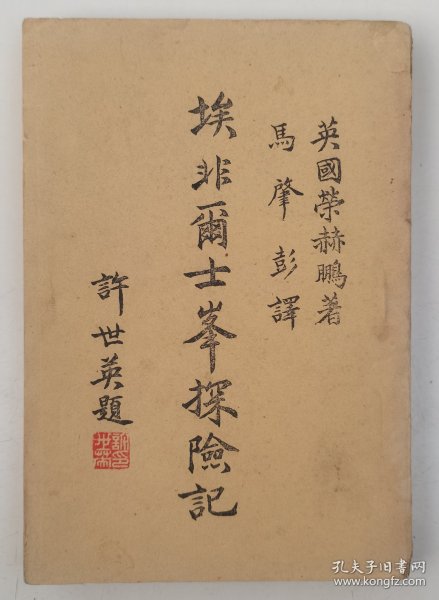 英國榮赫鵬著
馬肇彭譯
埃非爾士峯探險記
許世英題
孔夫子旧书网
www.kongfz.com